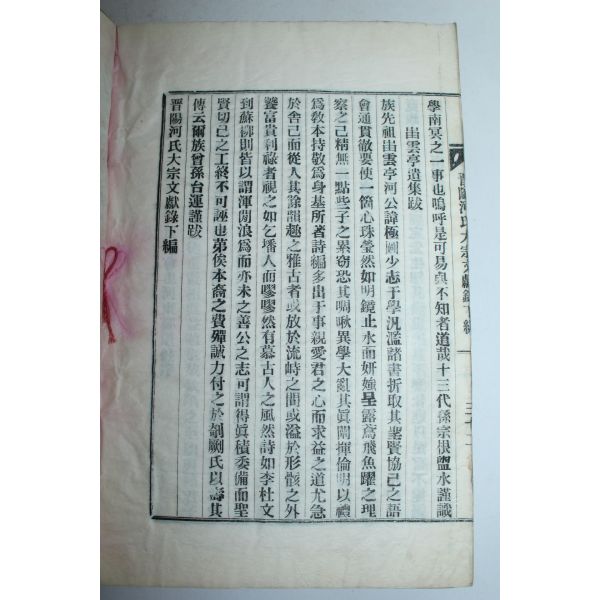 學南冥之一事也嗚呼是可易與不知者道哉十三代孫宗根盥水謹識
出雲亭遺集跋
族先祖出雲亭河公諱極圖少志于學汎濫諸書折取其聖賢協己之語
會通貫徹要使一箇心珠瑩然如明鏡止水而妍媸呈露鳶飛魚躍之理
察之已精無一點些子之累窃恐其啁啾異學大亂其眞闡揮倫明以禮
爲敎本持敬爲身基所著詩編多出于事親愛君之心而求益之道尤急
於舍己而從人其餘韻趣之雅古者或放於流峙之間或溢於形骸之外
養富貴利祿者視之如乞墦人而嘐嘐然有慕古人之風然詩如李杜文
到蘇柳則皆以謂渾閒浪爲而亦未之善公之志可謂得眞積委備而聖
賢切己之工終不可誣也弟俟本裔之費殫誠力付之於剞劂氏以壽其
傳云爾族曾孫台運謹跋
晋陽河氏大宗文獻錄下編
晋陽河氏大宗文獻錄下編